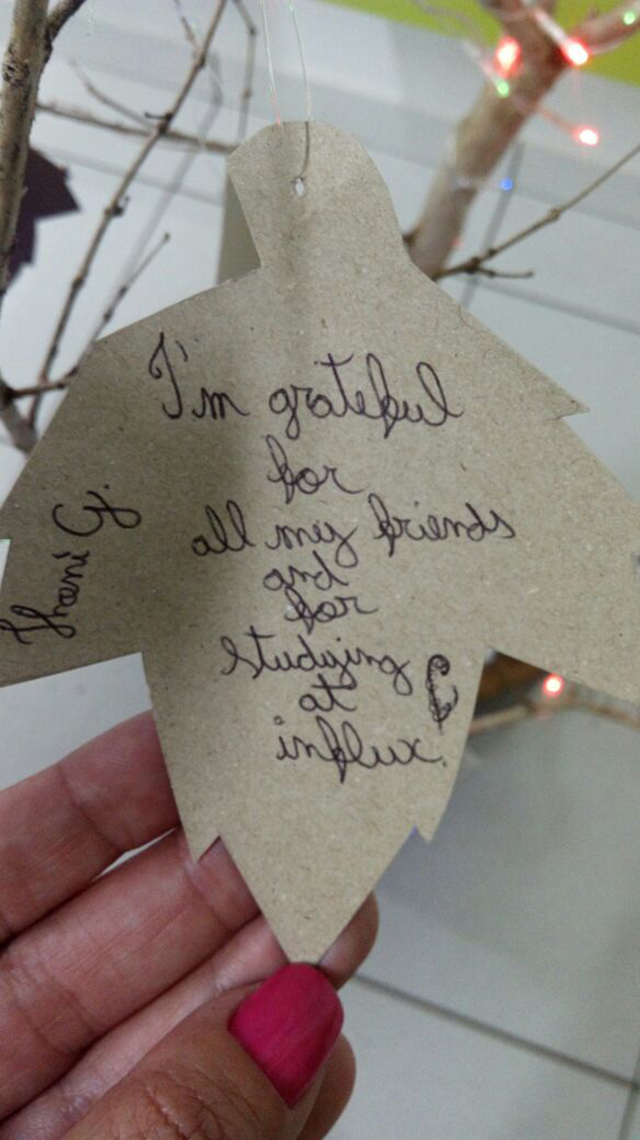 I'm grateful
for
all my friends
and
for
studying
at
influx.
Thani G.